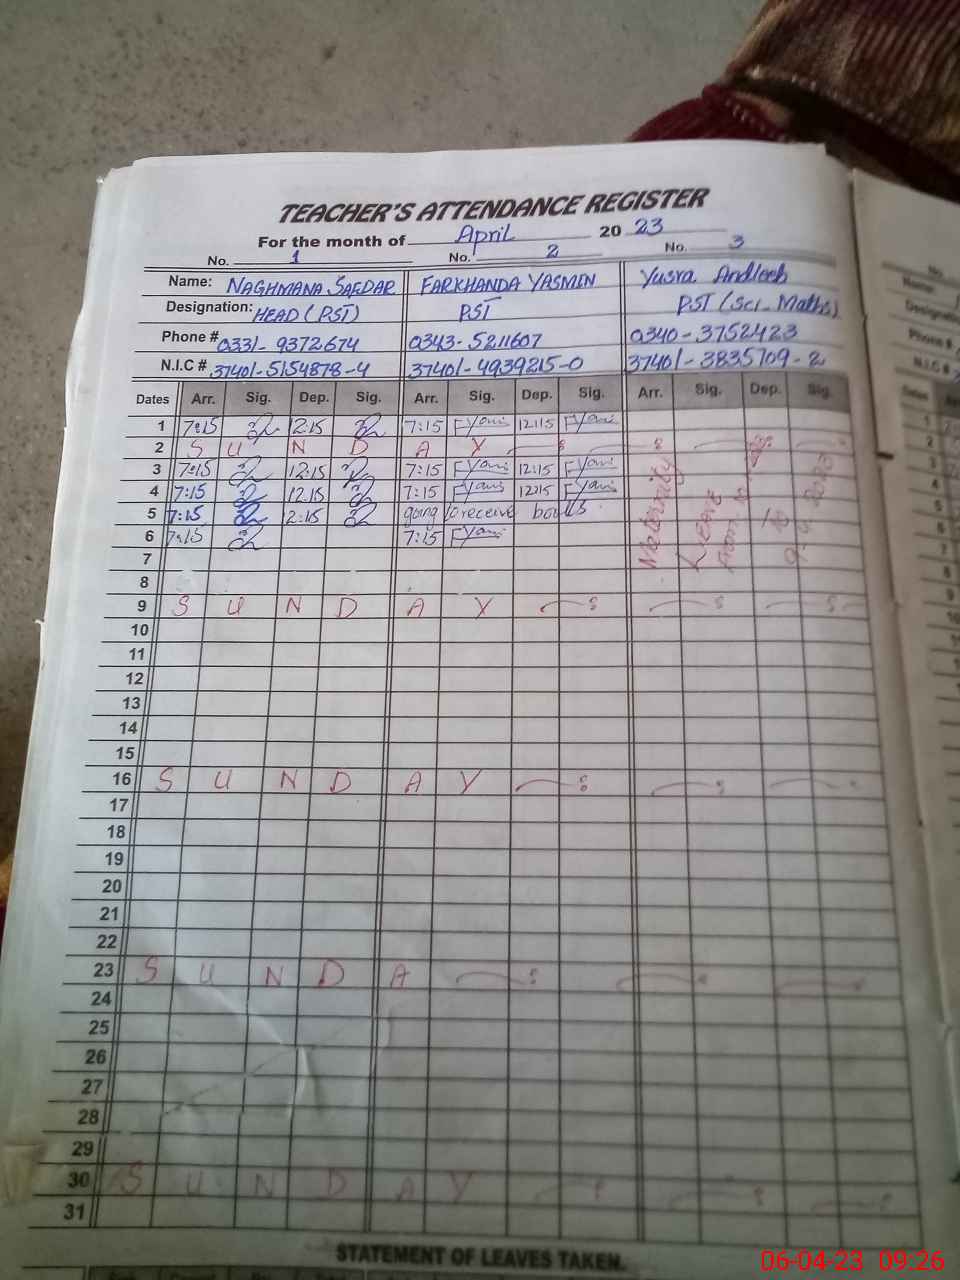 TEACHER'S ATTENDANCE REGISTER
For the month of April 20 23
No. 1 No. 2 No. 3
Name: NAGHMANA SAFDAR FARKHANDA YASMIN Yusra Andleeb
Designation: HEAD (PST) PST PST (Sci-Maths)
Phone # 0331-9372674 0343-5211607 0340-3752423
N.I.C # 37401-5154878-4 37401-4939215-0 37401-3835709-2
Dates Arr. Sig. Dep. Sig. Arr. Sig. Dep. Sig. Arr. Sig. Dep. Sig.
1 7:15 12:15 7:15 FYasmi 12:15 FYasmi
2 S U N D A Y
3 7:15 12:15 7:15 FYasmi 12:15 FYasmi
4 7:15 12:15 7:15 FYasmi 12:15 FYasmi
5 7:15 12:15 going to receive books
6 7:15 7:15 FYasmi
Maternity
Leave
from
to
7
8
9 S U N D A Y
10
11
12
13
14
15
16 S U N D A Y
17
18
19
20
21
22
23 S U N D A
24
25
26
27
28
29
30 S U N D A Y
31
STATEMENT OF LEAVES TAKEN.
06-04-23 09:26